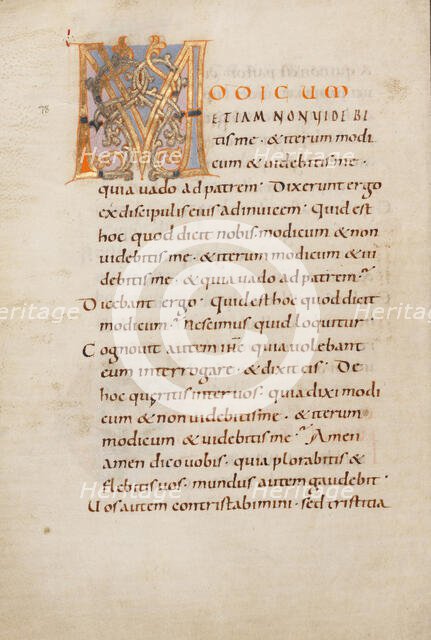 78
MODICUM
ETIAM NON VIDE BI
tis me · & iterum modi
cum & videbitis me ·
quia vado ad patrem · Dixerunt ergo
ex discipulis eius ad inuicem · Quid est
hoc quod dicit nobis · modicum & non
uidebitis me · & iterum modicum & ui
debitis me · & quia uado ad patrem ?
Dicebant ergo · Quid est hoc quod dicit
modicum ? nescimus quid loquitur ·
Cognouit autem ihs quia uolebant
eum interrogare · & dixit eis · De
hoc quęritis inter uos · quia dixi modi
cum & non uidebitis me · & iterum
modicum & uidebitis me ? Amen
amen dico uobis · quia plorabitis &
flebitis uos · mundus autem gaudebit ·
Uos autem contristabimini · sed tristitia
Heritage
Heritage
Heritage
Heritage
Heritage
Heritage